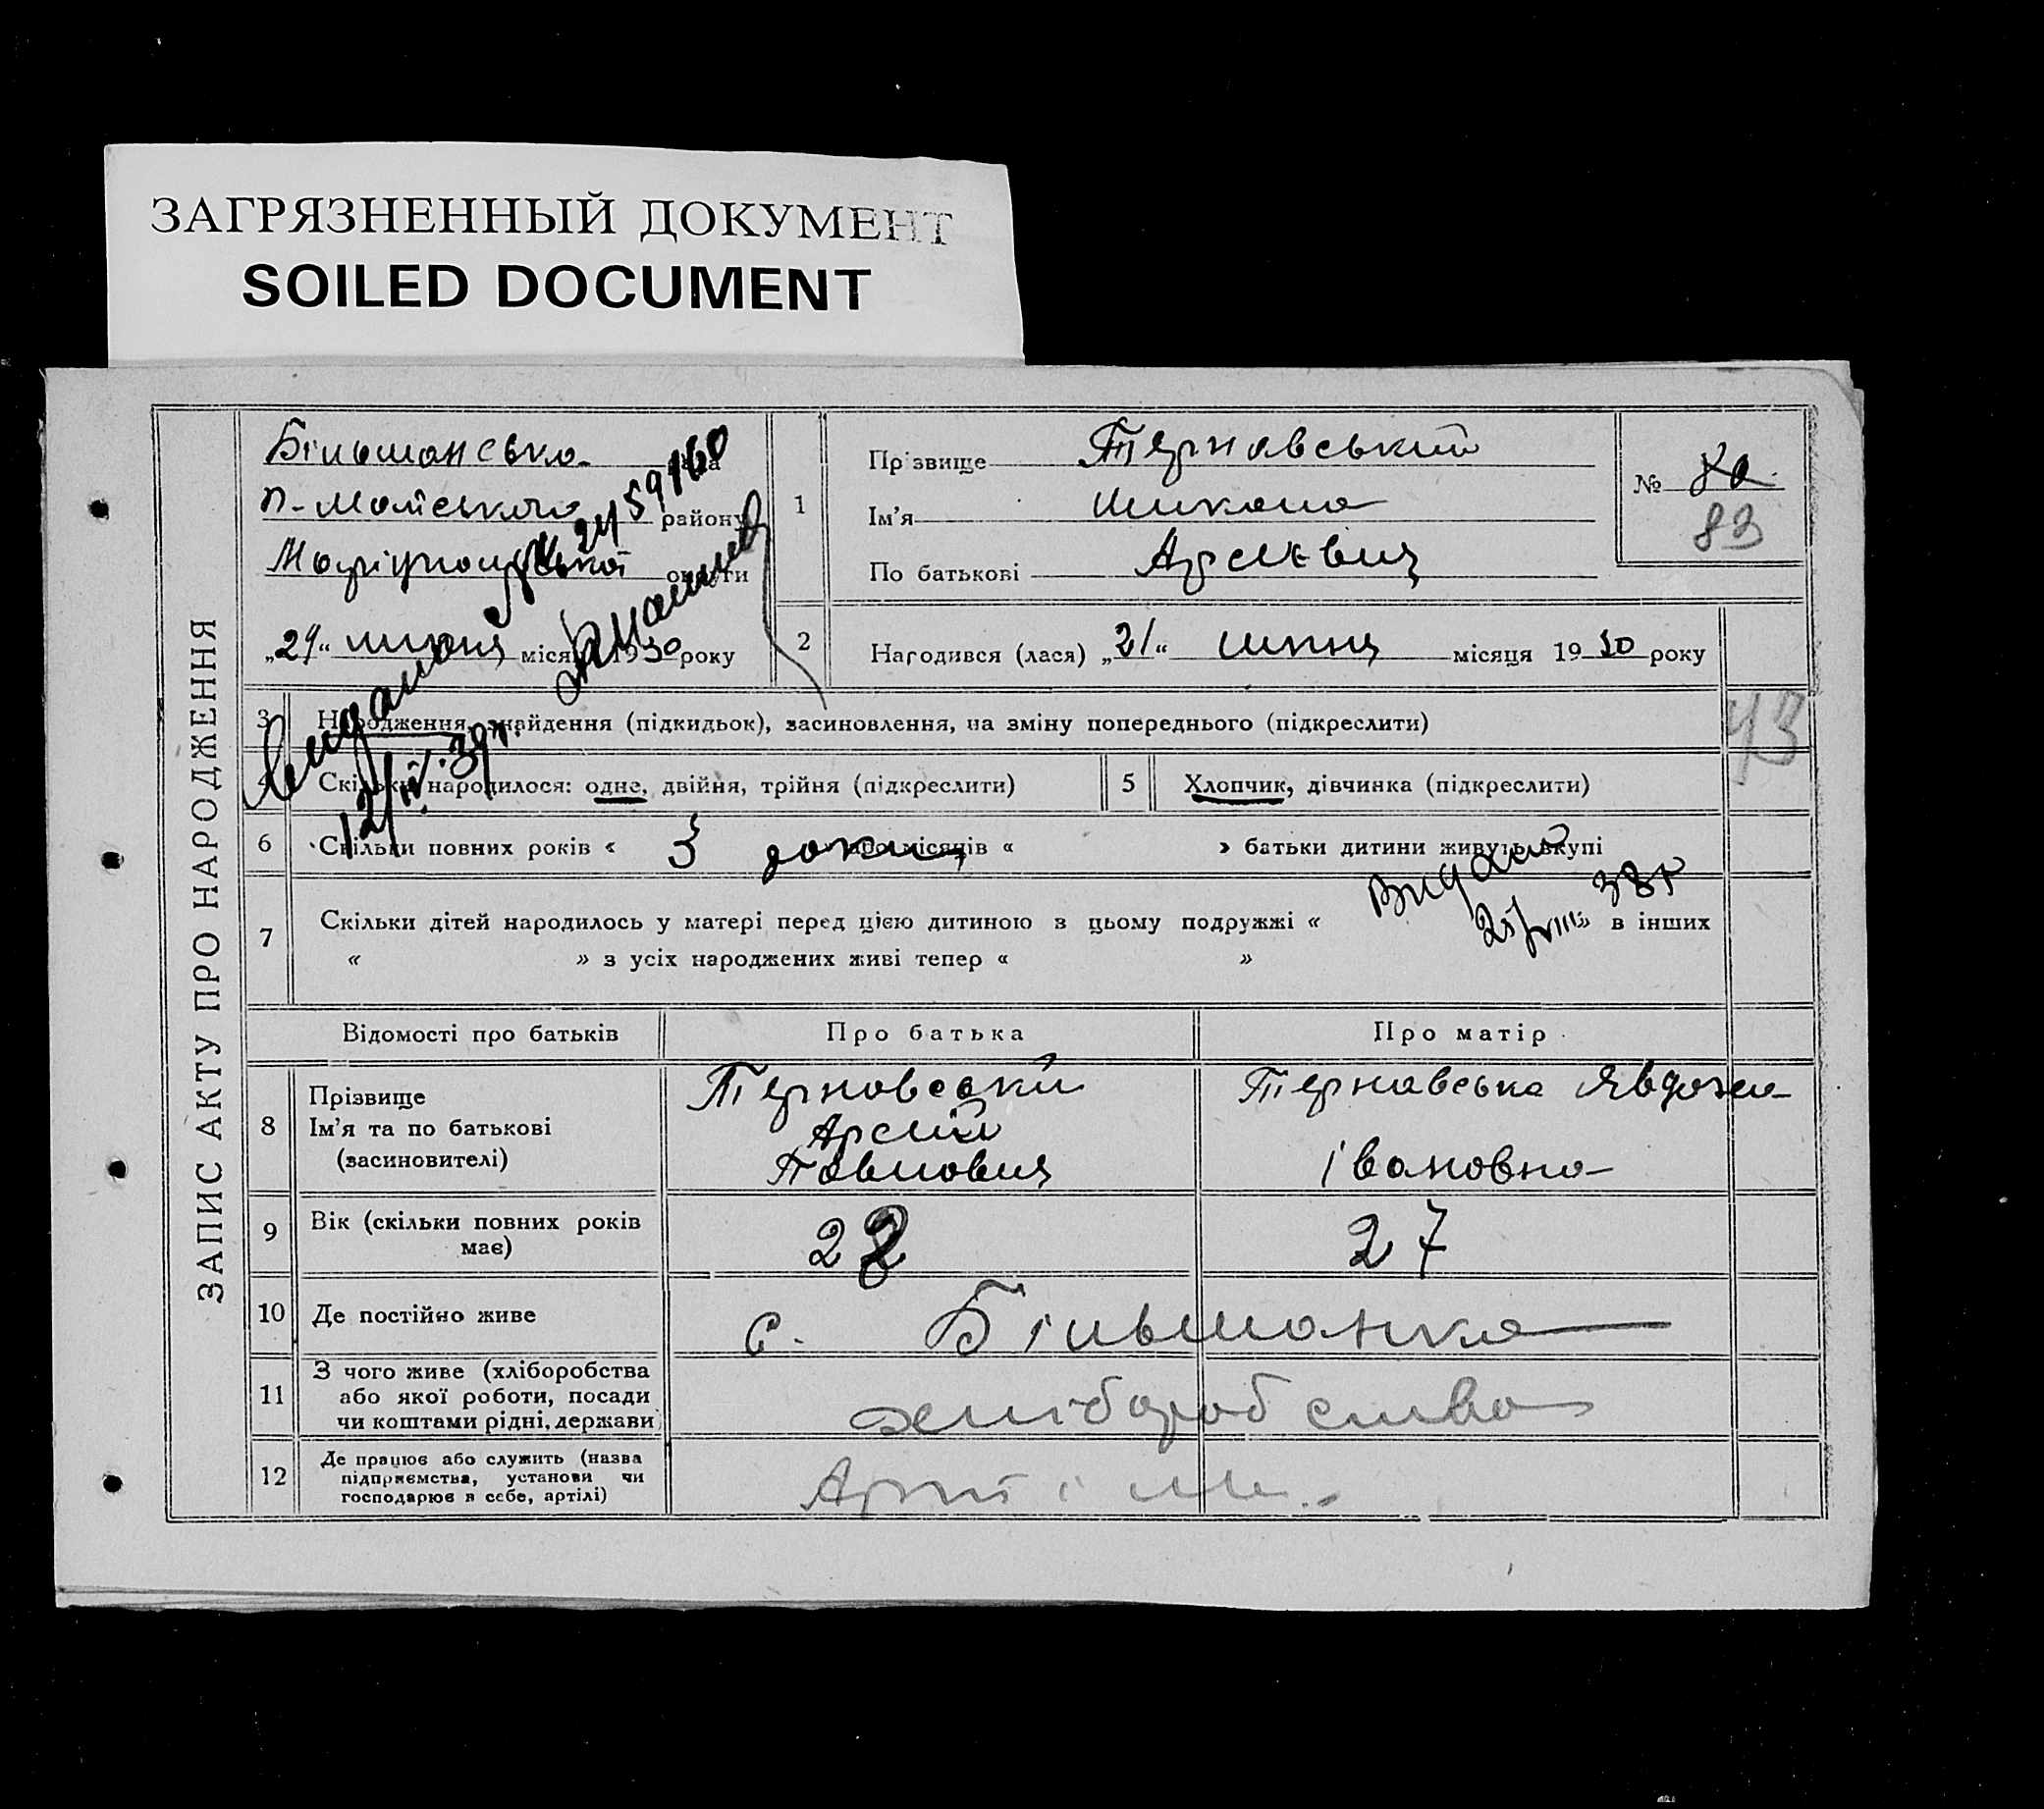 ЗАГРЯЗНЕННЫЙ ДОКУМЕНТ
SOILED DOCUMENT
ЗАПИС АКТУ ПРО НАРОДЖЕННЯ
Більшанська рада
П-Майського району
округи
„29“ місяця 1930 року
1
Прізвище Терновський
Ім’я Микола
По батькові
№ 82
83
2
Народився (лася) „21“ місяця 1930 року
3 Народження, знайдення (підкидьок), засиновлення, на зміну попереднього (підкреслити)
43
4 Скільки народилося: одне, двійня, трійня (підкреслити)
5 Хлопчик, дівчинка (підкреслити)
6 Скільки повних років « 3 роки або місяців « » батьки дитини живуть вкупі
7 Скільки дітей народилось у матері перед цією дитиною з цьому подружжі « » в інших
« » з усіх народжених живі тепер « »
Видано
12/IV.39р.
Видано
38р
Відомості про батьків
Про батька
Про матір
8 Прізвище
Ім’я та по батькові
(засиновителі)
Терновский
Арсєній
Павлович
Терновська Явдоха
Івановна
9 Вік (скільки повних років
має)
22
27
10 Де постійно живе
с. Більшанка
11 З чого живе (хліборобства
або якої роботи, посади
чи коштами рідні, держави)
хліборобство
12 Де працює або служить (назва
підприємства, установи чи
господарює в себе, артілі)
Артілі